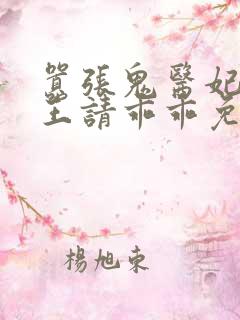 囂張鬼醫妃
王請乖乖免
楊旭東